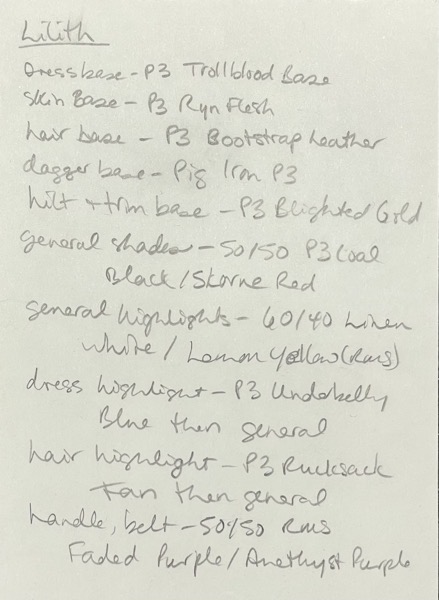 Lilith
Dress base - P3 Trollblood Base
Skin Base - P3 Ryn Flesh
hair base - P3 Bootstrap Leather
dagger base - Pig Iron P3
hilt + trim base - P3 Blighted Gold
general shades - 50/50 P3 Coal
Black/Skorne Red
general highlights - 60/40 Linen
White / Lemon Yellow (RMS)
dress highlight - P3 Underbelly
Blue then general
hair highlight - P3 Rucksack
Tan then general
handle, belt - 50/50 RMS
Faded Purple/Amethyst Purple